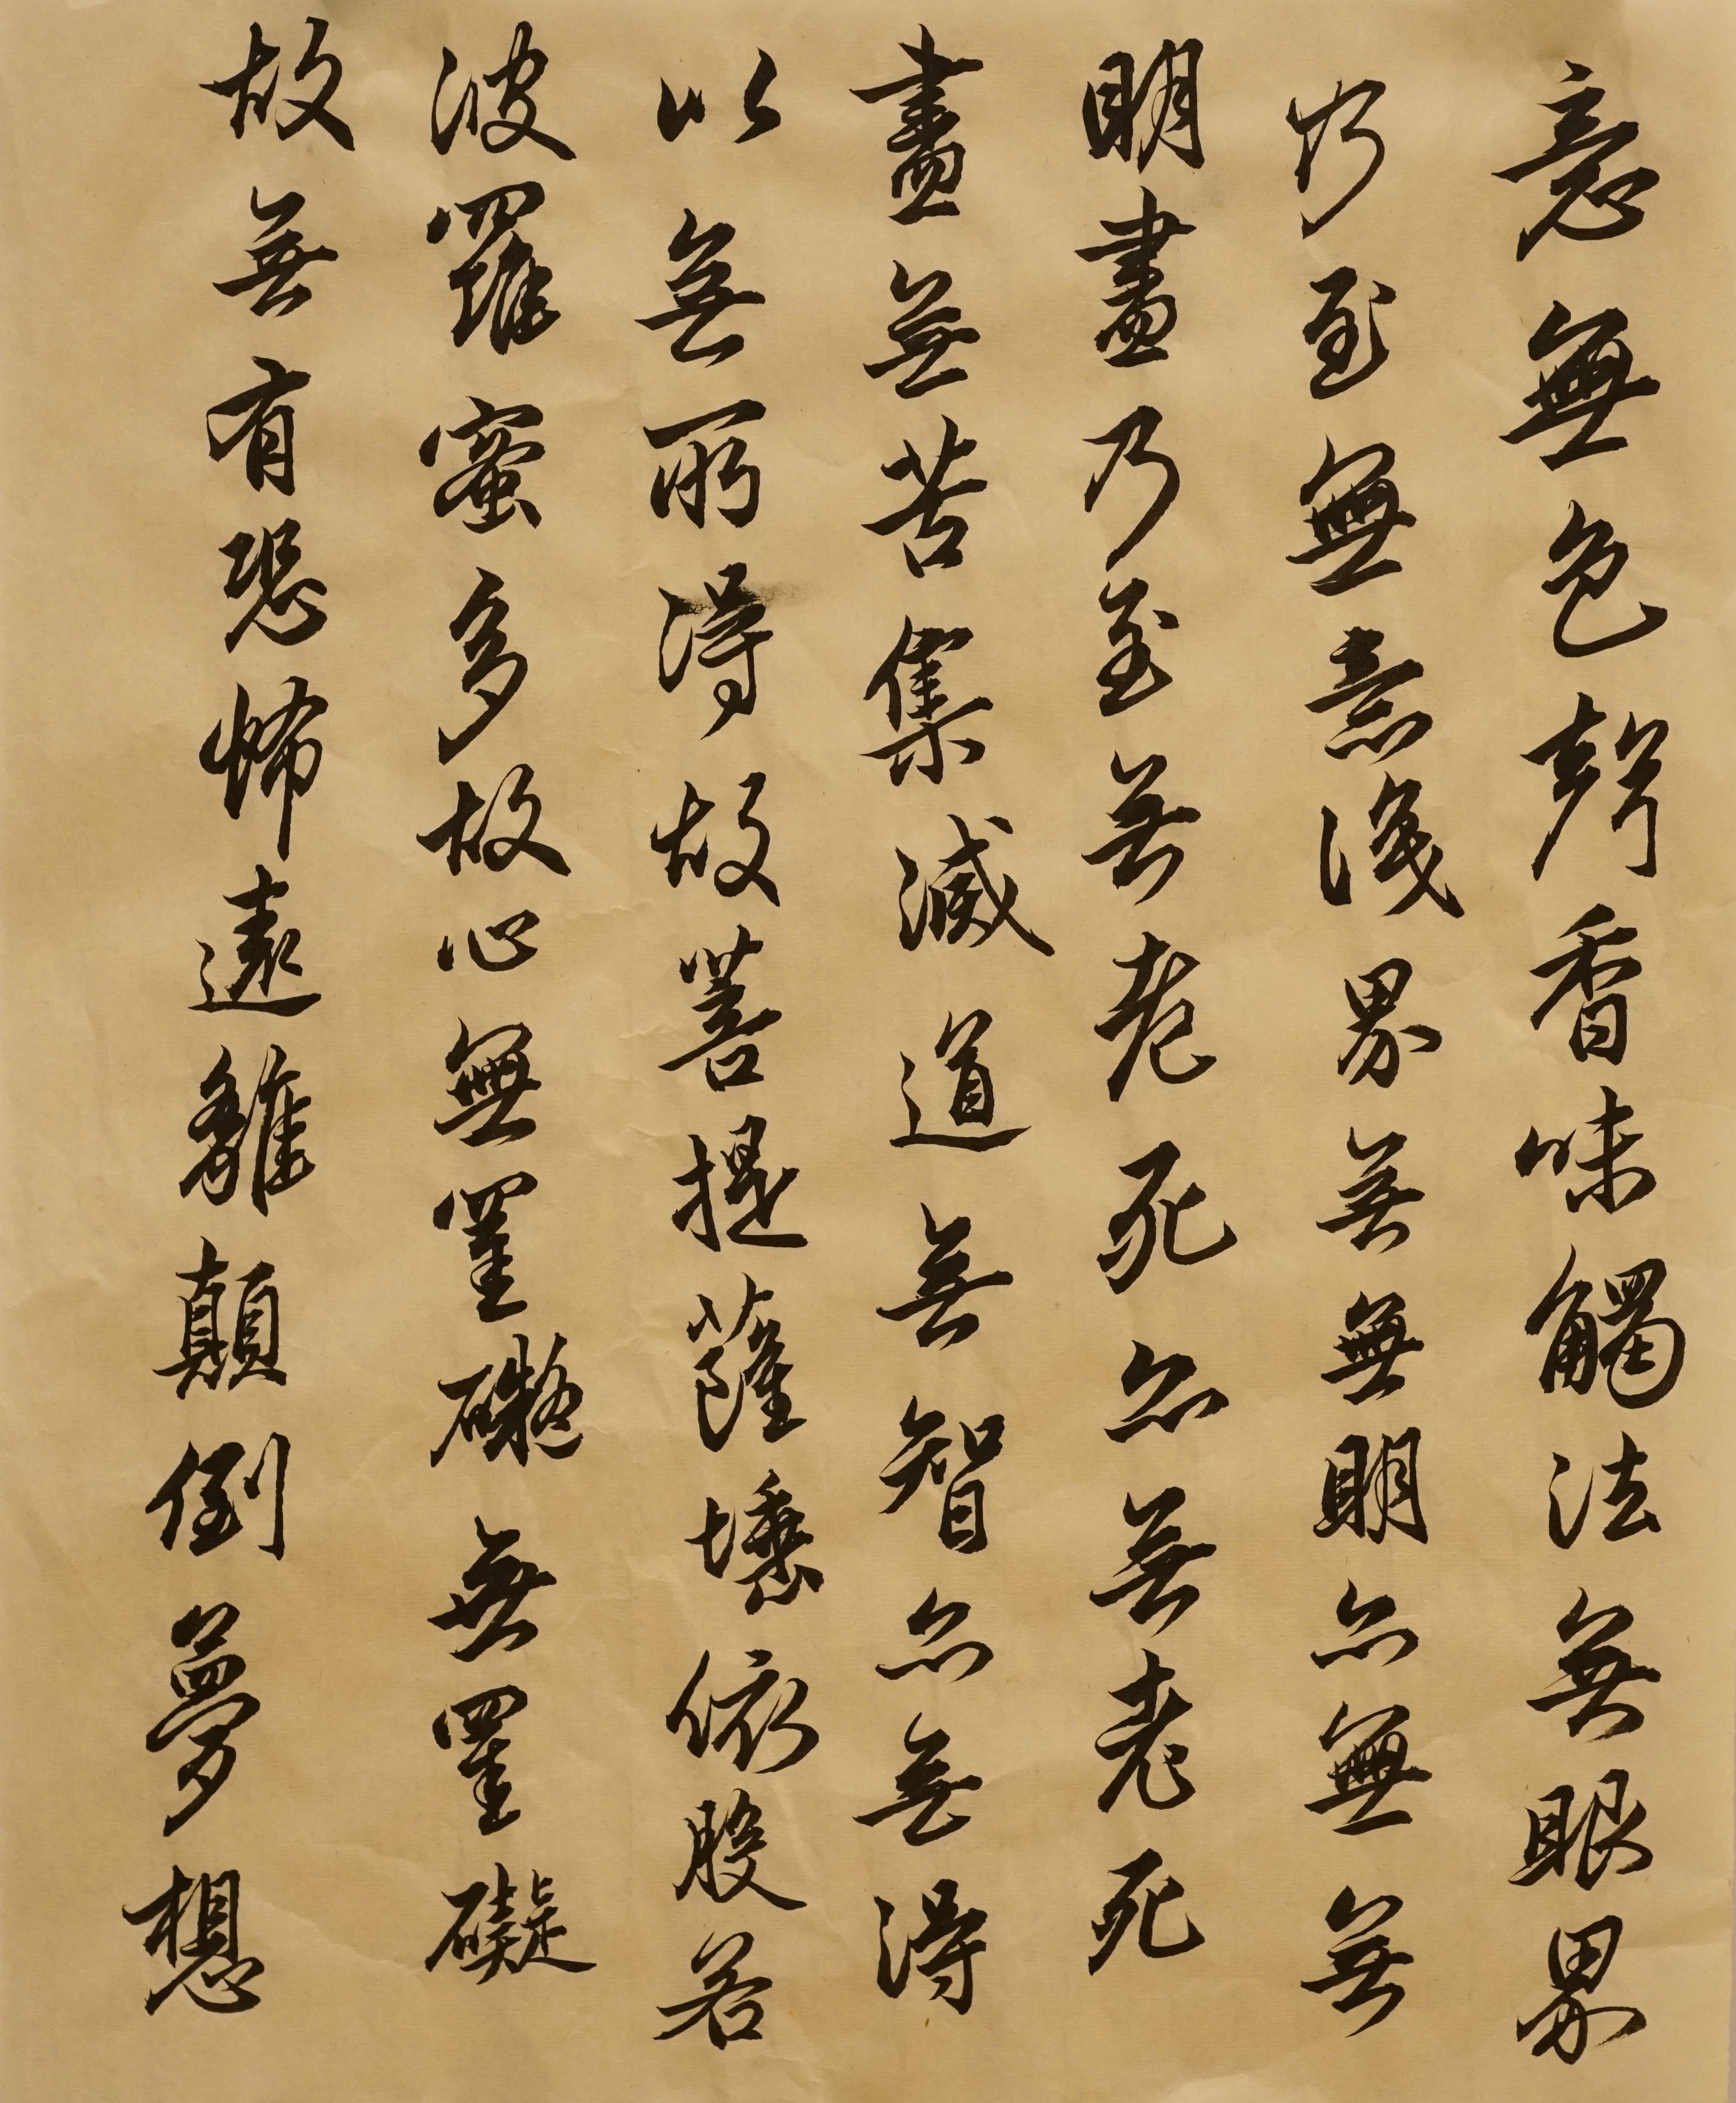 意無色聲香味觸法無眼界
乃至無意識界無無明亦無無
明盡乃至無老死亦無老死
盡無苦集滅道無智亦無得
以無所得故菩提薩埵依般若
波羅蜜多故心無罣礙無罣礙
故無有恐怖遠離顛倒夢想